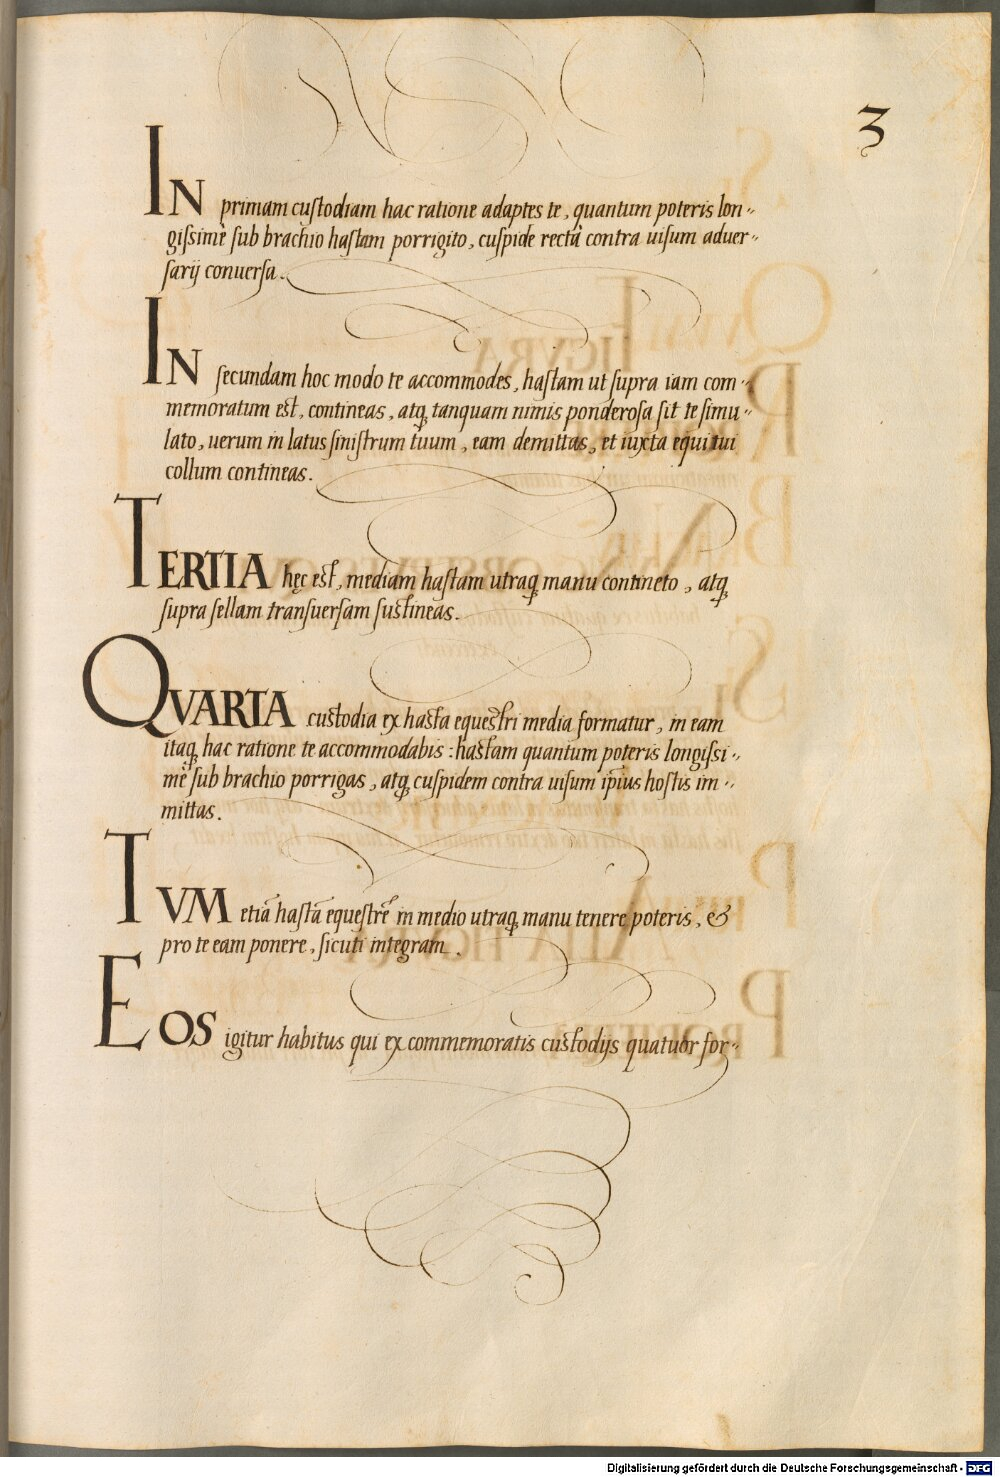 3
IN primam custodiam hac ratione adaptes te, quantum poteris lon〃
gissimè sub brachio hastam porrigito, cuspide rectà contra uisum aduer〃
sarij conuersa.
IN secundam hoc modo te accommodes, hastam ut supra iam com〃
memoratum est, contineas, atq; tanquam nimis ponderosa sit te simu〃
lato, uerum in latus sinistrum tuum, eam demittas, et iuxta equi tui
collum contineas.
TERTIA hęc est, mediam hastam utraq; manu contineto, atq;
supra sellam transuersam sustineas.
QVARTA custodia ex hasta equestri media formatur, in eam
itaq; hac ratione te accommodabis: hastam quantum poteris longissi〃
mè sub brachio porrigas, atq; cuspidem contra uisum ip̄ius hostis im〃
mittas.
TVM etiā hastā equestrē in medio utraq; manu tenere poteris, &
pro te eam ponere, sicuti integram.
EOS igitur habitus qui ex commemoratis custodijs quatuor for〃
Digitalisierung gefördert durch die Deutsche Forschungsgemeinschaft - DFG